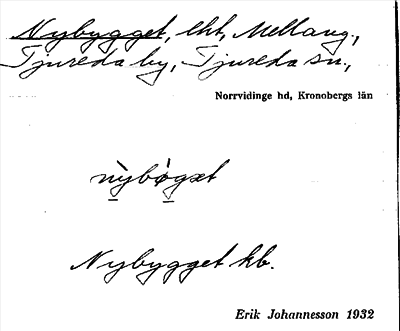 Nybygget, lht, Mellang.,
Tjureda by, Tjureda sn,
Norrvidinge hd, Kronobergs län
Nybygget kb.
Erik Johannesson 1932